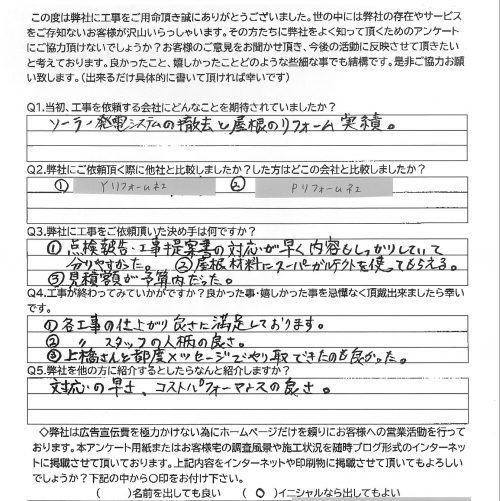 この度は弊社に工事をご用命頂き誠にありがとうございました。世の中には弊社の存在やサービス
をご存じないお客様が沢山いらっしゃいます。その方たちに弊社をよく知って頂くためのアンケート
にご協力頂けないでしょうか？お客様のご意見をお聞かせ頂き、今後の活動に反映させて頂きたい
と考えております。良かったこと、嬉しかったことどのような些細な事でも結構です。是非ご協力お願
い致します。（出来るだけ具体的に書いて頂ければ幸いです）
Q1.当初、工事を依頼する会社にどんなことを期待されていましたか？
ソーラー発電システムの撤去と屋根のリフォーム実績。
Q2.弊社にご依頼頂く際に他社と比較しましたか？した方はどこの会社と比較しましたか？
① Yリフォーム社 ② Pリフォーム社
Q3.弊社に工事をご依頼頂いた決め手は何ですか？
① 点検報告・工事提案書の対応が早く内容もしっかりしていて
分りやすかった。 ②屋根材料にスーパーガルテクトを使ってもらえる。
③見積額が予算内だった。
Q4.工事が終わってみていかがですか？良かった事・嬉しかった事を忌憚なく頂戴出来ましたら幸い
です。
①各工事の仕上がり良さに満足しております。
② 〃 スタッフの人柄の良さ。
③上橋さんと都度メッセージでやり取できたのも良かった。
Q5.弊社を他の方に紹介するとしたらなんと紹介しますか？
対応の早さ、コストパフォーマンスの良さ。
◇弊社は広告宣伝費を極力かけない為にホームページだけを頼りにお客様への営業活動を行って
おります。本アンケート用紙またはお客様宅の調査風景や施工状況を随時ブログ形式のインターネッ
トに掲載させて頂いております。上記内容をインターネットや印刷物に掲載させて頂いてもよろしい
でしょうか？下記の中から〇印をお付け下さい。
（ ）名前を出しても良い （ 〇 ）イニシャルなら出してもよい